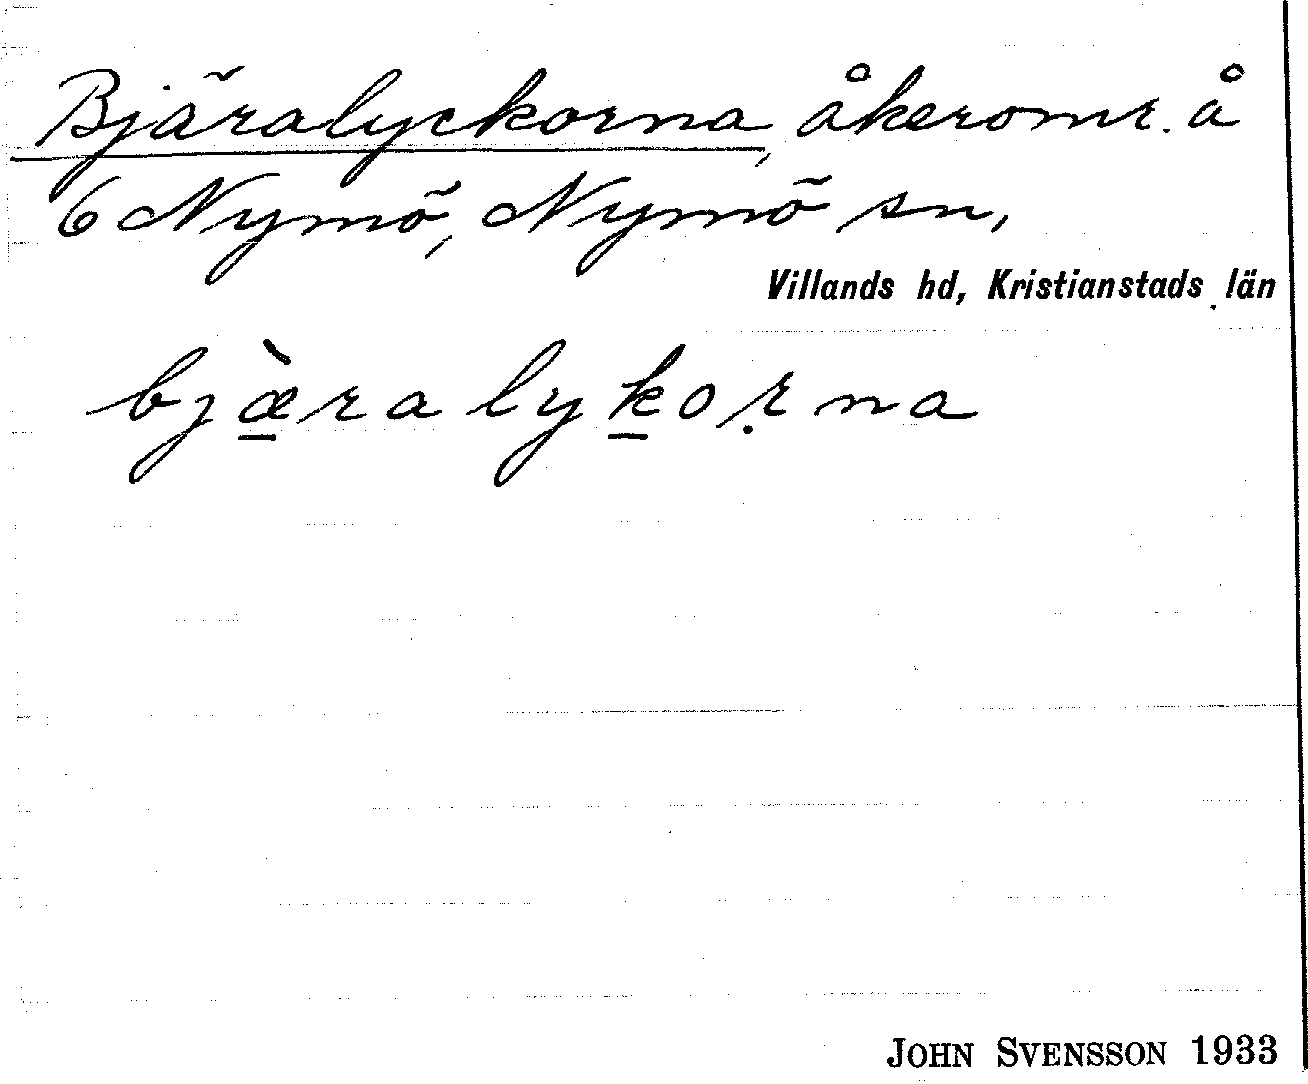 Bjäralyckorna, åkeromr. å
6 Nymö, Nymö sn,
Villands hd, Kristianstads län
bjæ̱̀ralyḵoṛna
JOHN SVENSSON 1933